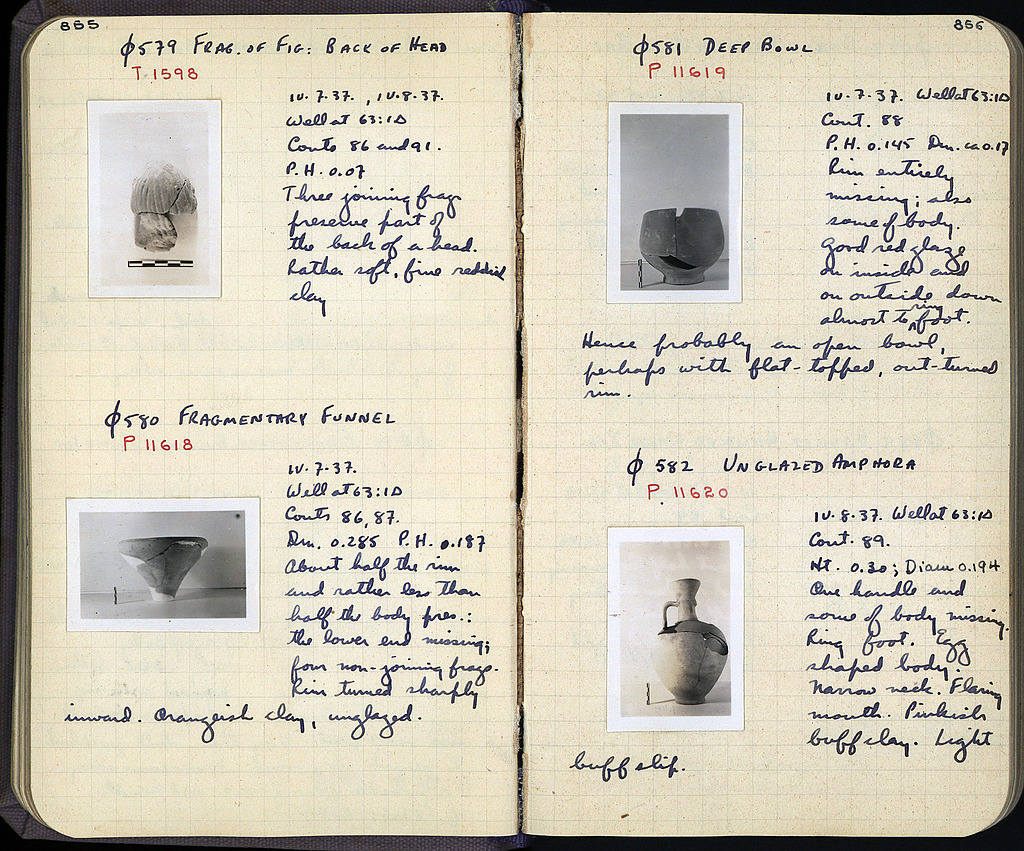 855
φ579 FRAG. OF FIG: BACK OF HEAD
T 1598
IV.7.37. , IV.8.37.
Well at 63:ΙΔ
Conts 86 and 91.
P.H. 0.07
Three joining frags
preserve part of
the back of a head.
Rather soft, fine reddish
clay
φ580 FRAGMENTARY FUNNEL
P 11618
IV.7.37.
Well at 63:ΙΔ
Conts 86, 87.
Dm. 0.285 P.H. 0.187
About half the rim
and rather less than
half the body pres.:
the lower end missing;
four non-joining frags.
Rim turned sharply
inward. Orangeish clay, unglazed.
856
φ581 DEEP BOWL
P 11619
IV.7.37. Well at 63:ΙΔ
Cont. 88
P.H. 0.145 Dm. ca 0.17
Rim entirely
missing; also
some of body.
Good red glaze
on inside and
on outside down
almost to ring foot.
Hence probably an open bowl,
perhaps with flat-topped, out-turned
rim.
φ582 UNGLAZED AMPHORA
P. 11620
IV.8.37. Well at 63:ΙΔ
Cont. 89.
Ht. 0.30; Diam 0.194
One handle and
some of body missing.
Ring foot. Egg
shaped body.
Narrow neck. Flaring
mouth. Pinkish
buff clay. Light
buff slip.